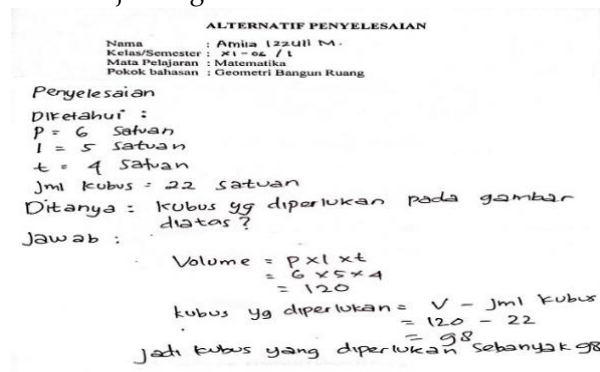 ALTERNATIF PENYELESAIAN
Nama : Amila Izzuli M.
Kelas/Semester : XI-06 / 1
Mata Pelajaran : Matematika
Pokok bahasan : Geometri Bangun Ruang
Penyelesaian
Diketahui :
P = 6 Satuan
l = 5 Satuan
t = 4 Satuan
Jml kubus = 22 satuan
Ditanya = kubus yg diperlukan pada gambar
diatas ?
Jawab :
Volume = p x l x t
= 6 x 5 x 4
= 120
kubus yg diperlukan = V - Jml kubus
= 120 - 22
= 98
Jadi kubus yang diperlukan sebanyak 98